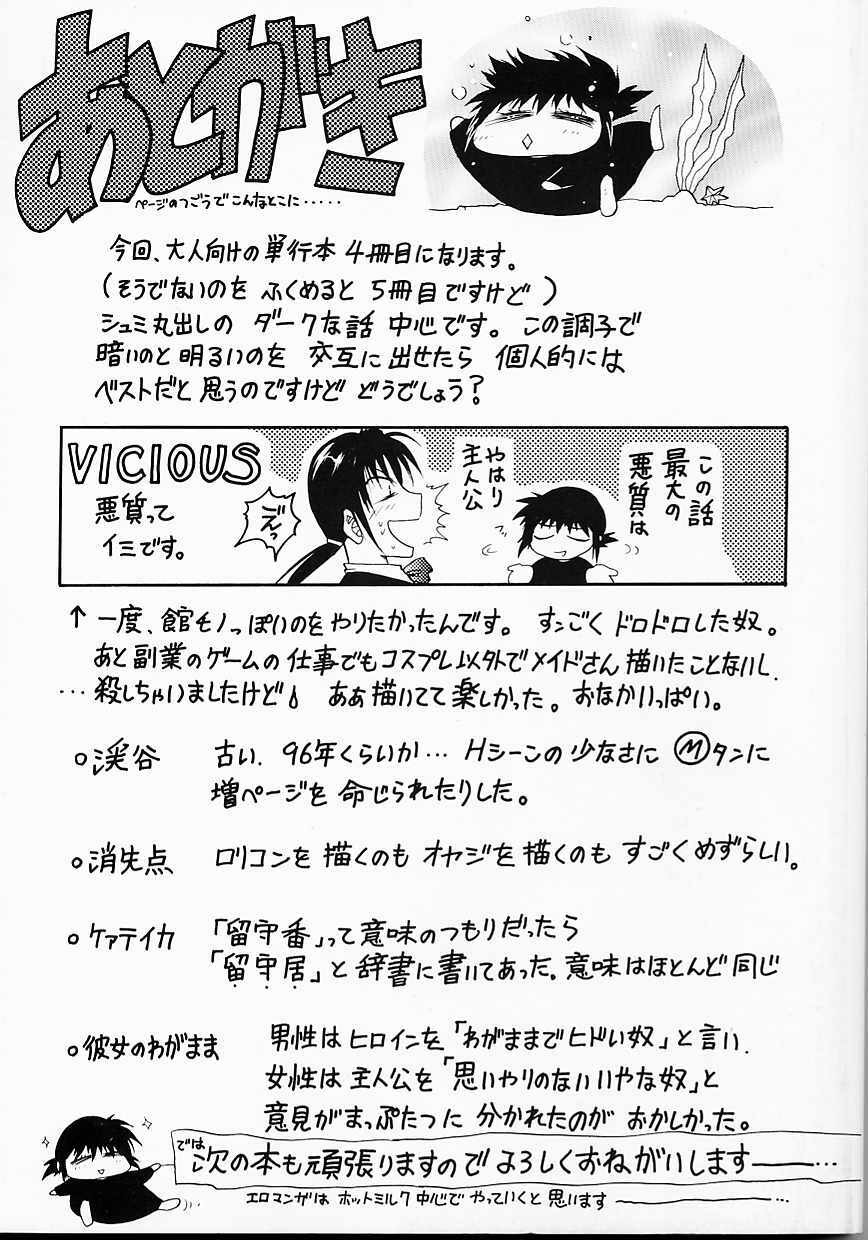 あとがき
ページのつごうでこんなとこに・・・・・
今回、大人向けの単行本 4冊目になります。
(そうでないのを ふくめると 5冊目ですけど)
シュミ丸出しの ダークな話 中心です。この調子で
暗いのと 明るいのを 交互に 出せたら 個人的には
ベストだと 思うのですけど どうでしょう?
VICIOUS
悪質って
イミです。
この話
最大の
悪質は
やはり
主人公
↑ 一度、館モノっぽいのを やりたかったんです。 すンごく ドロドロした奴。
あと 副業の ゲームの 仕事でも コスプレ以外で メイドさん 描いたことないし.
…殺しちゃいましたけど ああ 描いてて 楽しかった。おなかいっぱい。
○渓谷 古い. 96年くらいか… Hシーンの 少なさに Ⓜタンに
増ページを 命じられたりした。
○消失点 ロリコンを 描くのも オヤジを 描くのも すごく めずらしい。
○ケァテイカ 「留守番」って 意味の つもりだったら
「留守居」と 辞書に 書いてあった。意味は ほとんど 同じ
○彼女のわがまま 男性は ヒロインを「わがままで ヒドい 奴」と 言い.
女性は 主人公を「思いやりのない いやな 奴」と
意見が まっぷたつに 分かれたのが おかしかった。
では 次の本も 頑張りますので よろしく おねがいします――…
エロマンガは ホットミルク 中心で やっていくと 思います――…